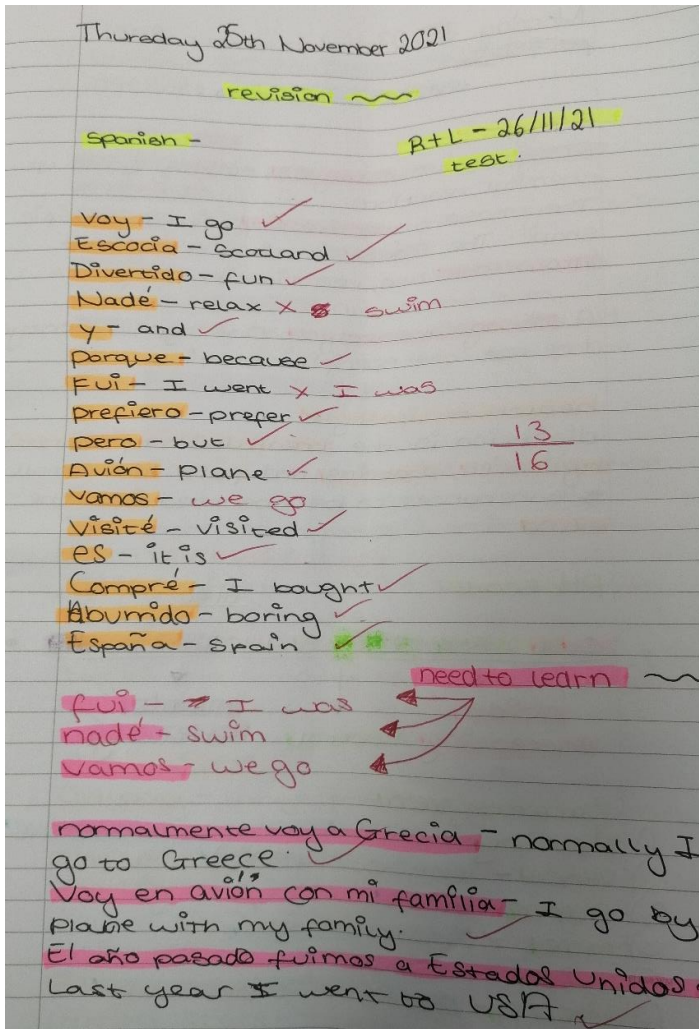 Thursday 25th November 2021
revision
Spanish -
R+L - 26/11/21
test.
Voy - I go ✓
Escocia - Scotland ✓
Divertido - fun ✓
Nadé - relax x swim
y - and ✓
porque - because ✓
Fui - I went x I was
prefiero - prefer ✓
pero - but ✓
Avión - plane ✓
Vamos - we go
Visité - visited ✓
es - it is ✓
Compré - I bought ✓
Aburrido - boring ✓
España - Spain ✓
13
16
need to learn
fui - I was
nadé - swim
vamos - we go
normalmente voy a Grecia - normally I
go to Greece. ✓
Voy en avión con mi familia - I go by
plane with my family. ✓
El año pasado fuimos a Estados Unidos -
Last year I went to USA ✓